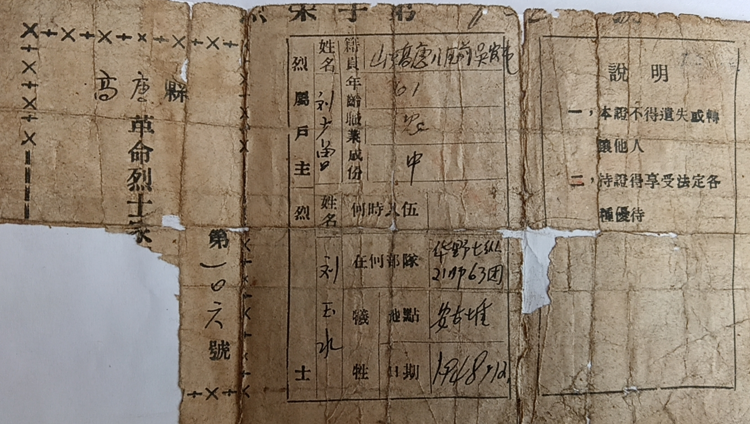 高唐縣
革命烈士家
第一〇六號
烈屬戶主
姓名
刘
籍貫
山东高唐八區前吳
年齡
61
職業
成份
中
烈士
姓名
刘玉水
何時入伍
在何部隊
华野七纵
21师63团
犧牲地點
犧牲日期
1948.12.
說明
一，本證不得遺失或轉
讓他人
二，持證得享受法定各
種優待